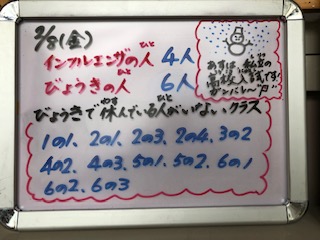 2/8(金)
インフルエンザの人 4人
びょうきの人 6人
びょうきで休んでいる人がいないクラス
1の1、2の1、2の3、2の4、3の2
4の2、4の3、5の1、5の2、6の1
6の2、6の3
あすは私立の
高校入試です!
ガンバレ〜